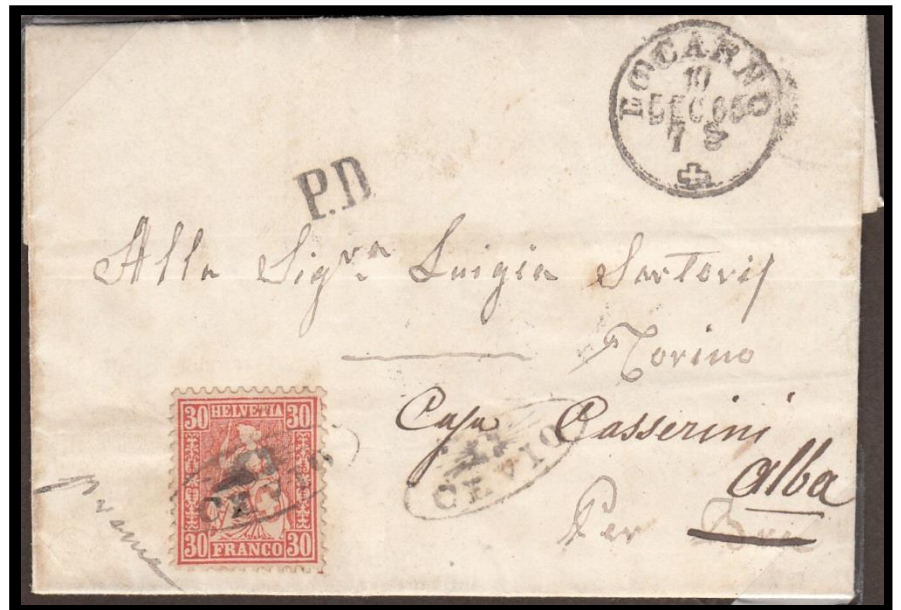 LOCARNO
10
DEC 65
7 S
P.D
Alla Sig.ra Luigia Sartoris
Torino
Casa Casserini
CEVIO
Alba
Per
30 HELVETIA 30
CEVIO
30 FRANCO 30